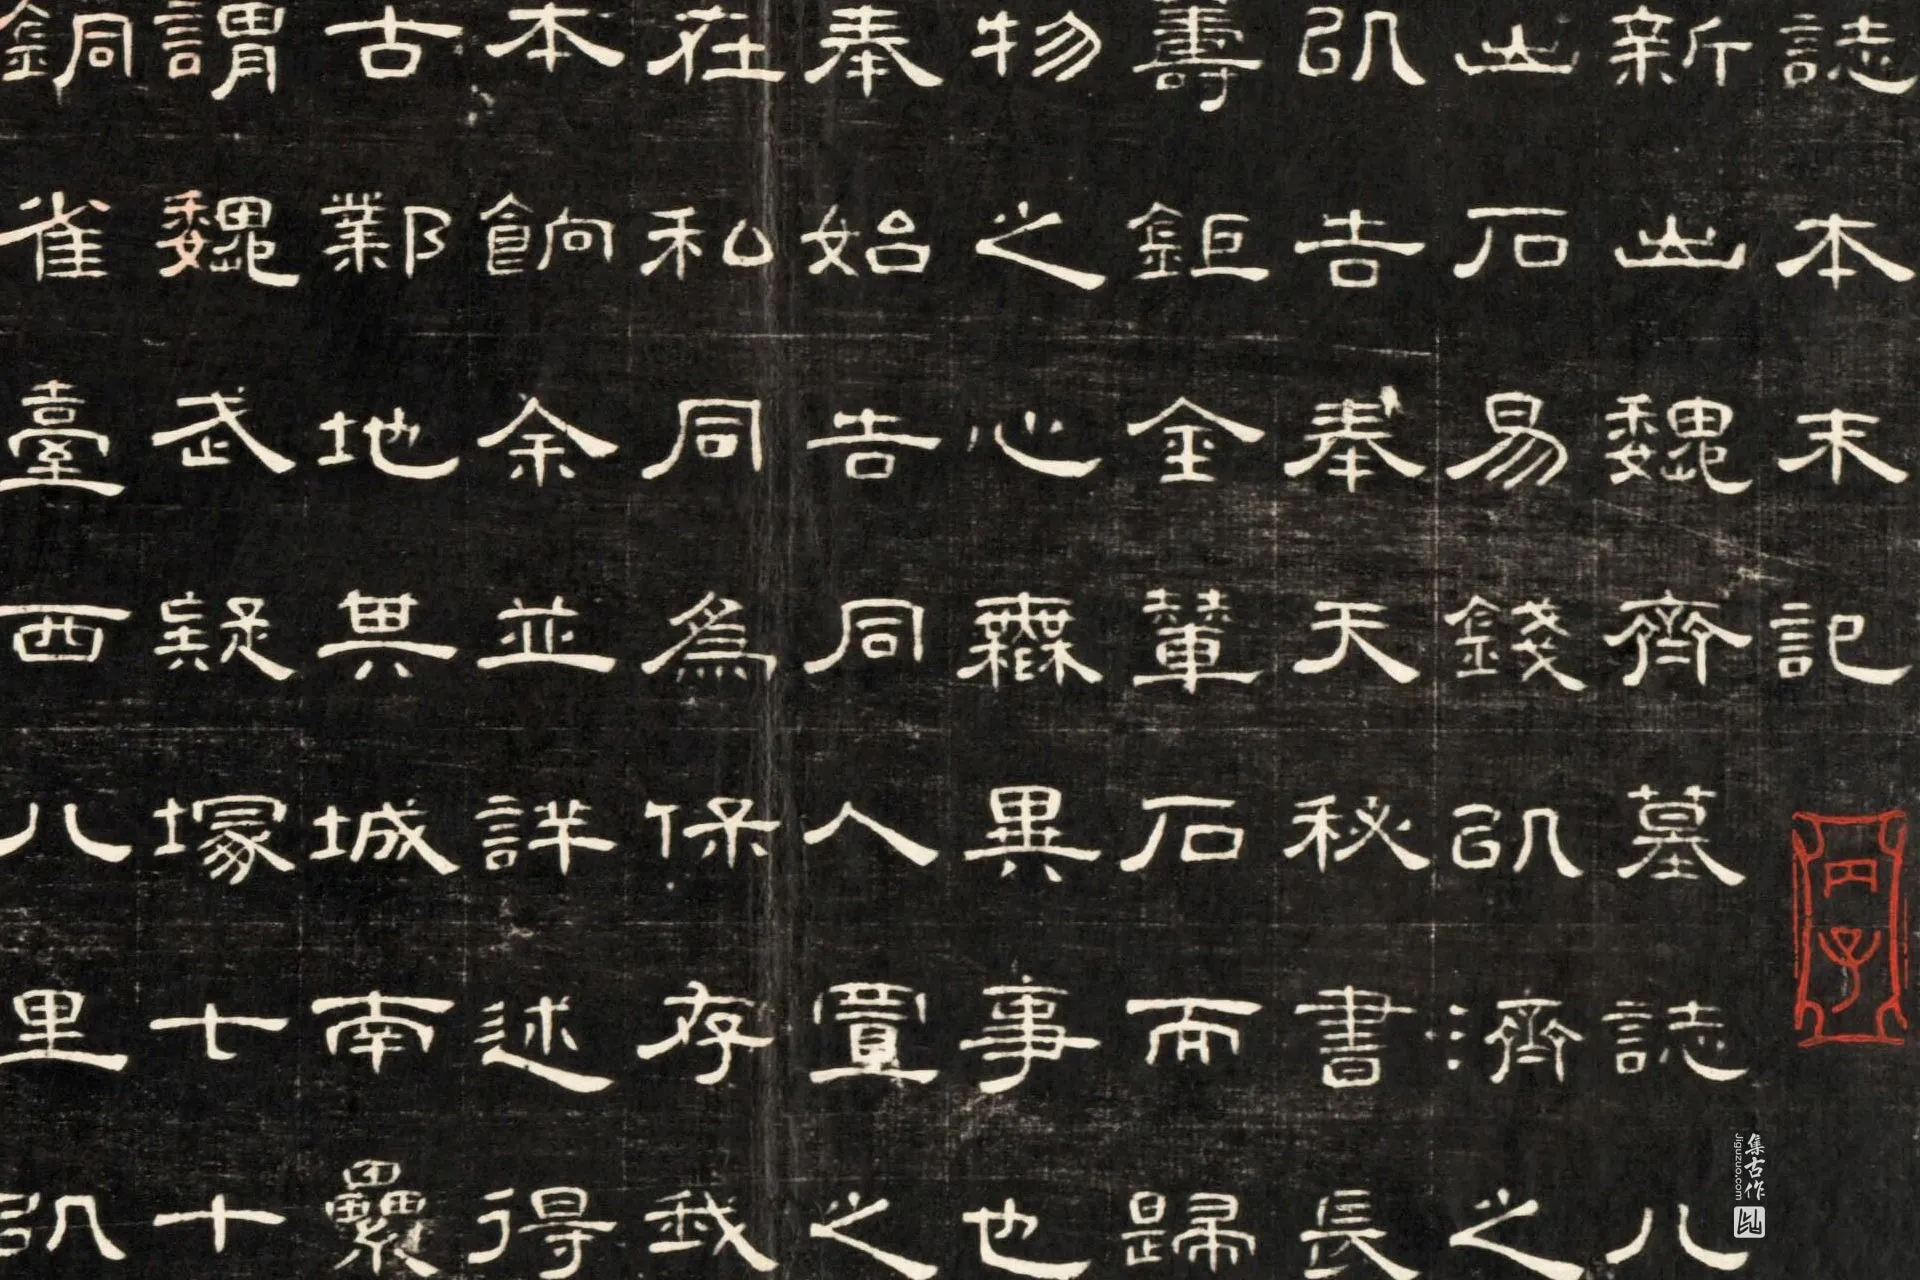 誌本末記
新出魏齊墓誌八
出石易錢以濟之
以告奉天秘書長
籌鉅金輦石而歸
物之心橆異事也
奉始告同人置之
在私同為保存我
本餉余並詳述得
古鄴地其城南纍
謂魏武疑塚七十
銅雀臺西八里以
集古作
Jiguzuo.com